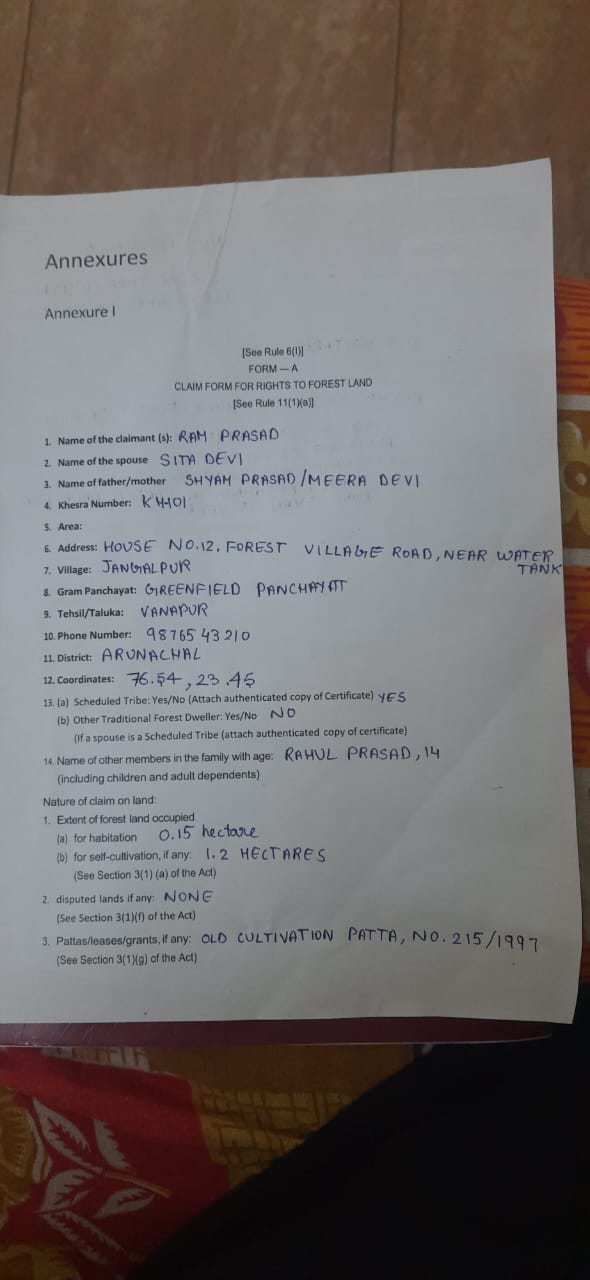 Annexures
Annexure I
[See Rule 6(l)]
FORM – A
CLAIM FORM FOR RIGHTS TO FOREST LAND
[See Rule 11(1)(a)]
1. Name of the claimant (s): RAM PRASAD
2. Name of the spouse SITA DEVI
3. Name of father/mother SHYAM PRASAD/MEERA DEVI
4. Khesra Number:
5. Area:
6. Address: HOUSE NO.12, FOREST VILLAGE ROAD, NEAR WATER TANK
7. Village: JANGALPUR
8. Gram Panchayat: GREENFIELD PANCHAYAT
9. Tehsil/Taluka: VANAPUR
10. Phone Number: 9876543210
11. District: ARUNACHAL
12. Coordinates: 76.54, 23.45
13. (a) Scheduled Tribe: Yes/No (Attach authenticated copy of Certificate) YES
(b) Other Traditional Forest Dweller: Yes/No NO
(If a spouse is a Scheduled Tribe (attach authenticated copy of certificate)
14. Name of other members in the family with age: RAHUL PRASAD, 14
(including children and adult dependents)
Nature of claim on land:
1. Extent of forest land occupied
(a) for habitation 0.15 hectare
(b) for self-cultivation, if any: 1.2 HECTARES
(See Section 3(1) (a) of the Act)
2. disputed lands if any: NONE
(See Section 3(1)(f) of the Act)
3. Pattas/leases/grants, if any: OLD CULTIVATION PATTA, NO. 215/1997
(See Section 3(1)(g) of the Act)